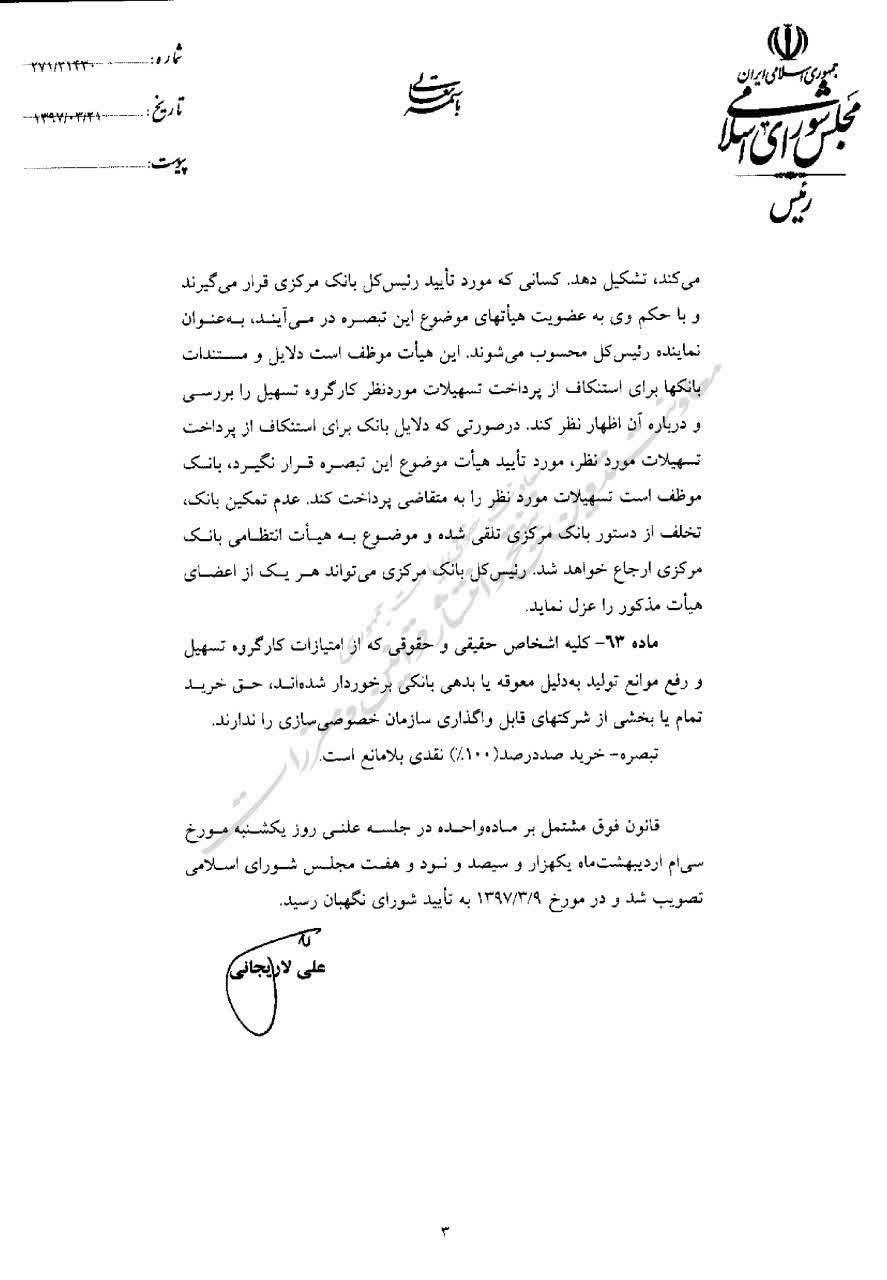 جمهوری اسلامی ایران
مجلس شورای اسلامی
رئیس
باسمه تعالی
شماره: ۲۷۱/۲۱۴۳۰
تاریخ: ۱۳۹۷/۰۳/۲۱
پیوست:
می‌کند، تشکیل دهد. کسانی که مورد تأیید رئیس‌کل بانک مرکزی قرار می‌گیرند
و با حکم وی به عضویت هیأتهای موضوع این تبصره در می‌آیند، به‌عنوان
نماینده رئیس‌کل محسوب می‌شوند. این هیأت موظف است دلایل و مستندات
بانکها برای استنکاف از پرداخت تسهیلات موردنظر کارگروه تسهیل را بررسی
و درباره آن اظهار نظر کند. درصورتی که دلایل بانک برای استنکاف از پرداخت
تسهیلات مورد نظر، مورد تأیید هیأت موضوع این تبصره قرار نگیرد، بانک
موظف است تسهیلات مورد نظر را به متقاضی پرداخت کند. عدم تمکین بانک،
تخلف از دستور بانک مرکزی تلقی شده و موضوع به هیأت انتظامی بانک
مرکزی ارجاع خواهد شد. رئیس‌کل بانک مرکزی می‌تواند هر یک از اعضای
هیأت مذکور را عزل نماید.
ماده ۶۳- کلیه اشخاص حقیقی و حقوقی که از امتیازات کارگروه تسهیل
و رفع موانع تولید به‌دلیل معوقه یا بدهی بانکی برخوردار شده‌اند، حق خرید
تمام یا بخشی از شرکتهای قابل واگذاری سازمان خصوصی‌سازی را ندارند.
تبصره- خرید صددرصد(۱۰۰٪) نقدی بلامانع است.
قانون فوق مشتمل بر ماده‌واحده در جلسه علنی روز یکشنبه مورخ
سی‌ام اردیبهشت‌ماه یکهزار و سیصد و نود و هفت مجلس شورای اسلامی
تصویب شد و در مورخ ۱۳۹۷/۳/۹ به تأیید شورای نگهبان رسید.
علی لاریجانی
۳